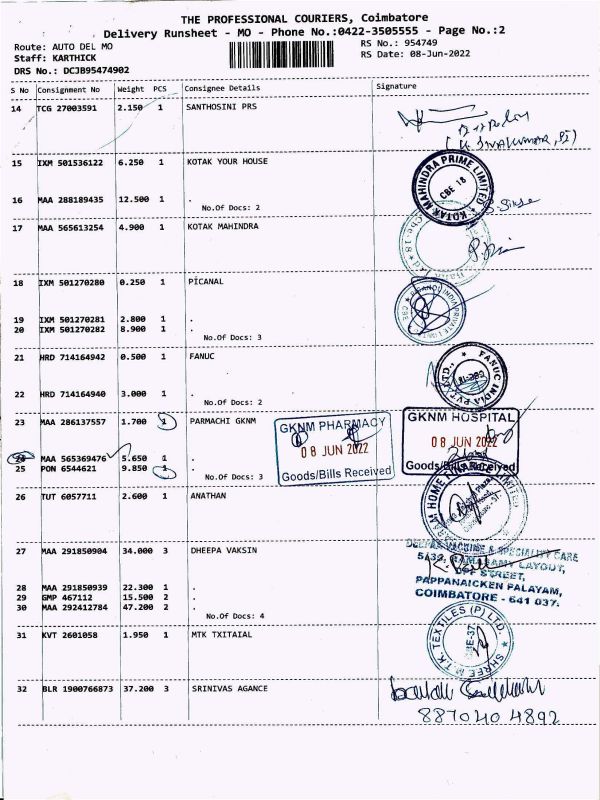 THE PROFESSIONAL COURIERS, Coimbatore
Delivery Runsheet - MO - Phone No.:0422-3505555 - Page No.:2
Route: AUTO DEL MO
RS No.: 954749
Staff: KARTHICK
RS Date: 08-Jun-2022
DRS No.: DCJB95474902
S No Consignment No Weight PCS Consignee Details Signature
14 TCG 27003591 2.150 1 SANTHOSINI PRS
15 IXM 501536122 6.250 1 KOTAK YOUR HOUSE
KOTAK MAHINDRA PRIME LIMITED
CBE 18
16 MAA 288189435 12.500 1 .
No.Of Docs: 2
17 MAA 565613254 4.900 1 KOTAK MAHINDRA
18 IXM 501270280 0.250 1 PICANAL
19 IXM 501270281 2.800 1 .
20 IXM 501270282 8.900 1 .
No.Of Docs: 3
21 HRD 714164942 0.500 1 FANUC
FANUC INDIA PVT. LTD.
22 HRD 714164940 3.000 1 .
No.Of Docs: 2
23 MAA 286137557 1.700 1 PARMACHI GKNM
GKNM PHARMACY
08 JUN 2022
Goods/Bills Received
GKNM HOSPITAL
08 JUN 2022
Goods/Bills Received
24 MAA 565369476 5.650 1 .
25 PON 6544621 9.850 1 .
No.Of Docs: 3
26 TUT 6057711 2.600 1 ANATHAN
27 MAA 291850904 34.000 3 DHEEPA VAKSIN
DEEPAA VACCINE & SPECIALITY CARE
LAYOUT,
STREET,
PAPPANAICKEN PALAYAM,
COIMBATORE - 641 037.
28 MAA 291850939 22.300 1 .
29 GMP 467112 15.500 2 .
30 MAA 292412784 47.200 2 .
No.Of Docs: 4
31 KVT 2601058 1.950 1 MTK TXITAIAL
SHREE M.T.K. TEXTILES (P) LTD.
CBE-37
32 BLR 1900766873 37.200 3 SRINIVAS AGANCE
8870404892